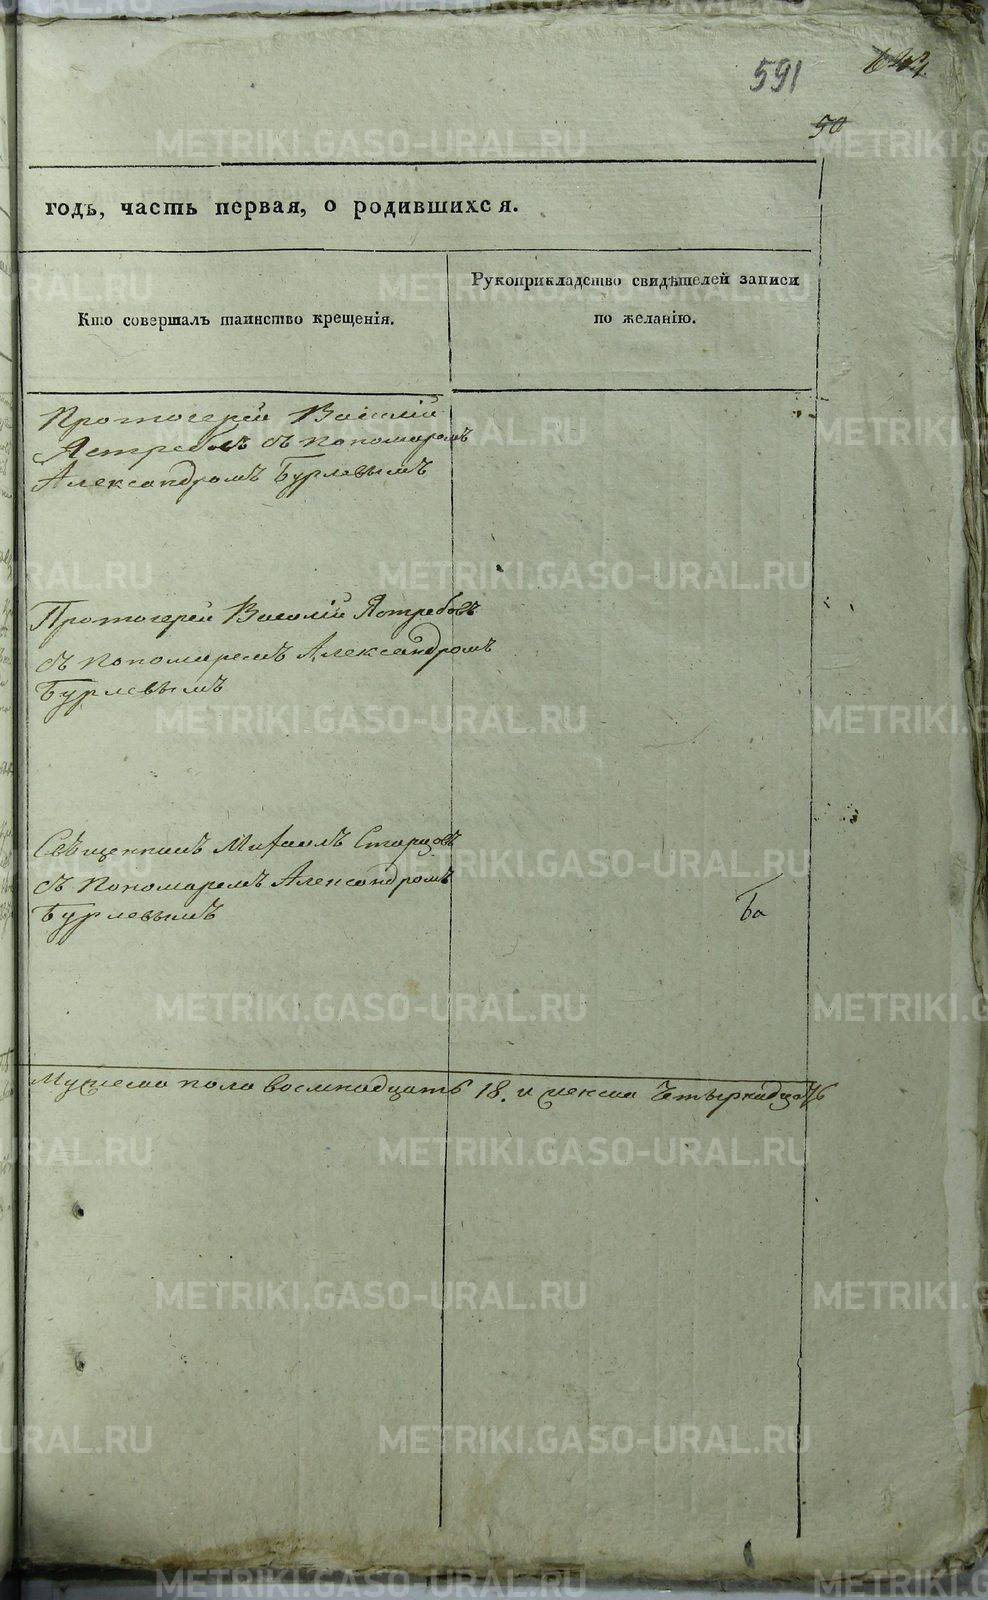 591
50
годъ, часть первая, о родившихся.
Кто совершалъ таинство крещенія.
Рукоприкладство свидѣтелей записи
по желанію.
Протоіерей Василій
Ястребовъ съ пономаремъ
Александромъ Бурлевымъ
Протоіерей Василій Ястребовъ
съ пономаремъ Александромъ
Бурлевымъ
Священникъ Михаилъ Старцовъ
съ пономаремъ Александромъ
Бурлевымъ
Мужеска пола восмнадцать 18. и женска
METRIKI.GASO-URAL.RU